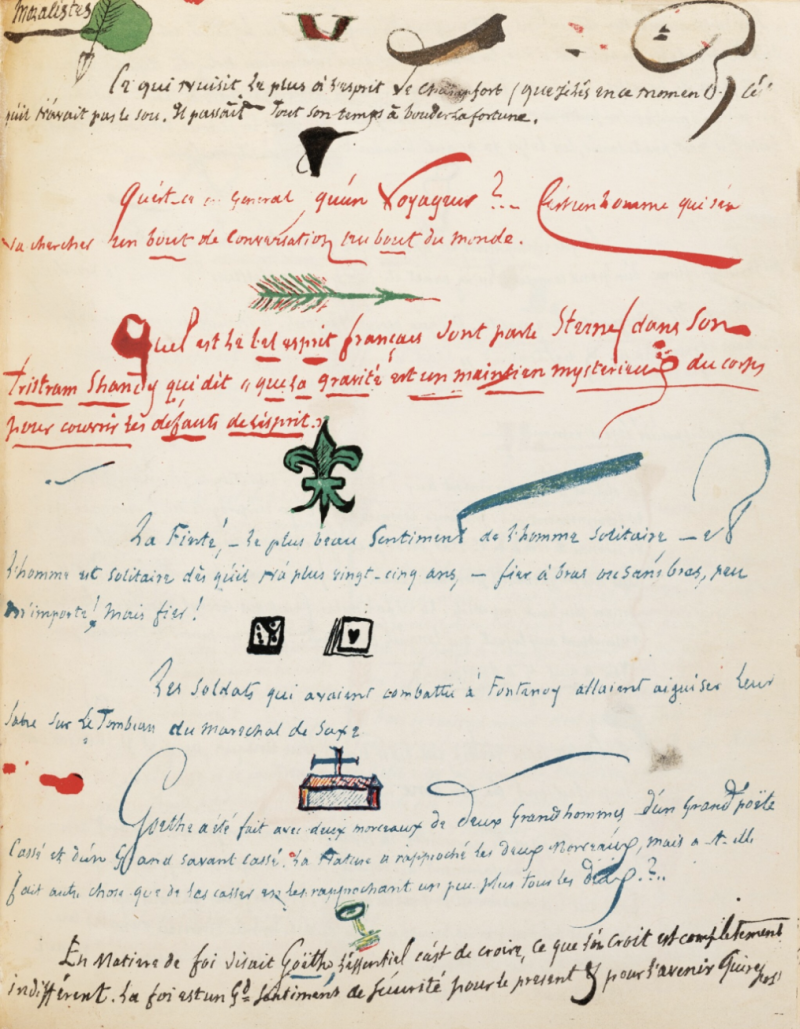 Moralistes
Ce qui nuisit le plus à l'esprit de Chamfort (que je lis en ce moment) c'est
qu'il n'avait pas le sou. Il passait tout son temps à bouder la fortune.
Qu'est-ce en general qu'un Voyageur ?... C'est un homme qui s'en
va chercher un bout de Conversation au bout du monde.
Quel est le bel esprit français dont parle Sterne (dans son
Tristram Shandy qui dit « que la gravité est un maintien mysterieux du corps
pour couvrir les défauts de l'esprit. »
La Fierté, — le plus beau Sentiment de l'homme solitaire — et
l'homme est solitaire dès qu'il n'a plus vingt-cinq ans, — fier à bras ou sans bras, peu
m'importe ! Mais fier !
Les Soldats qui avaient combattu à Fontenoy allaient aiguiser leur
sabre sur le Tombeau du Marechal de Saxe
Goethe a été fait avec deux morceaux de deux Grands hommes d'un Grand poëte
Cassé et d'un Grand savant cassé. La Nature a rapproché les deux Morceaux, mais a-t-elle
fait autre chose que de les casser en les rapprochant un peu plus tous les deux ?..
En Matiere de foi disait Goëthe, l'éssentiel c'est de croire, ce que l'on croit est completement
indifférent. La foi est un Gd Sentiment de sécurité pour le present & pour l'avenir